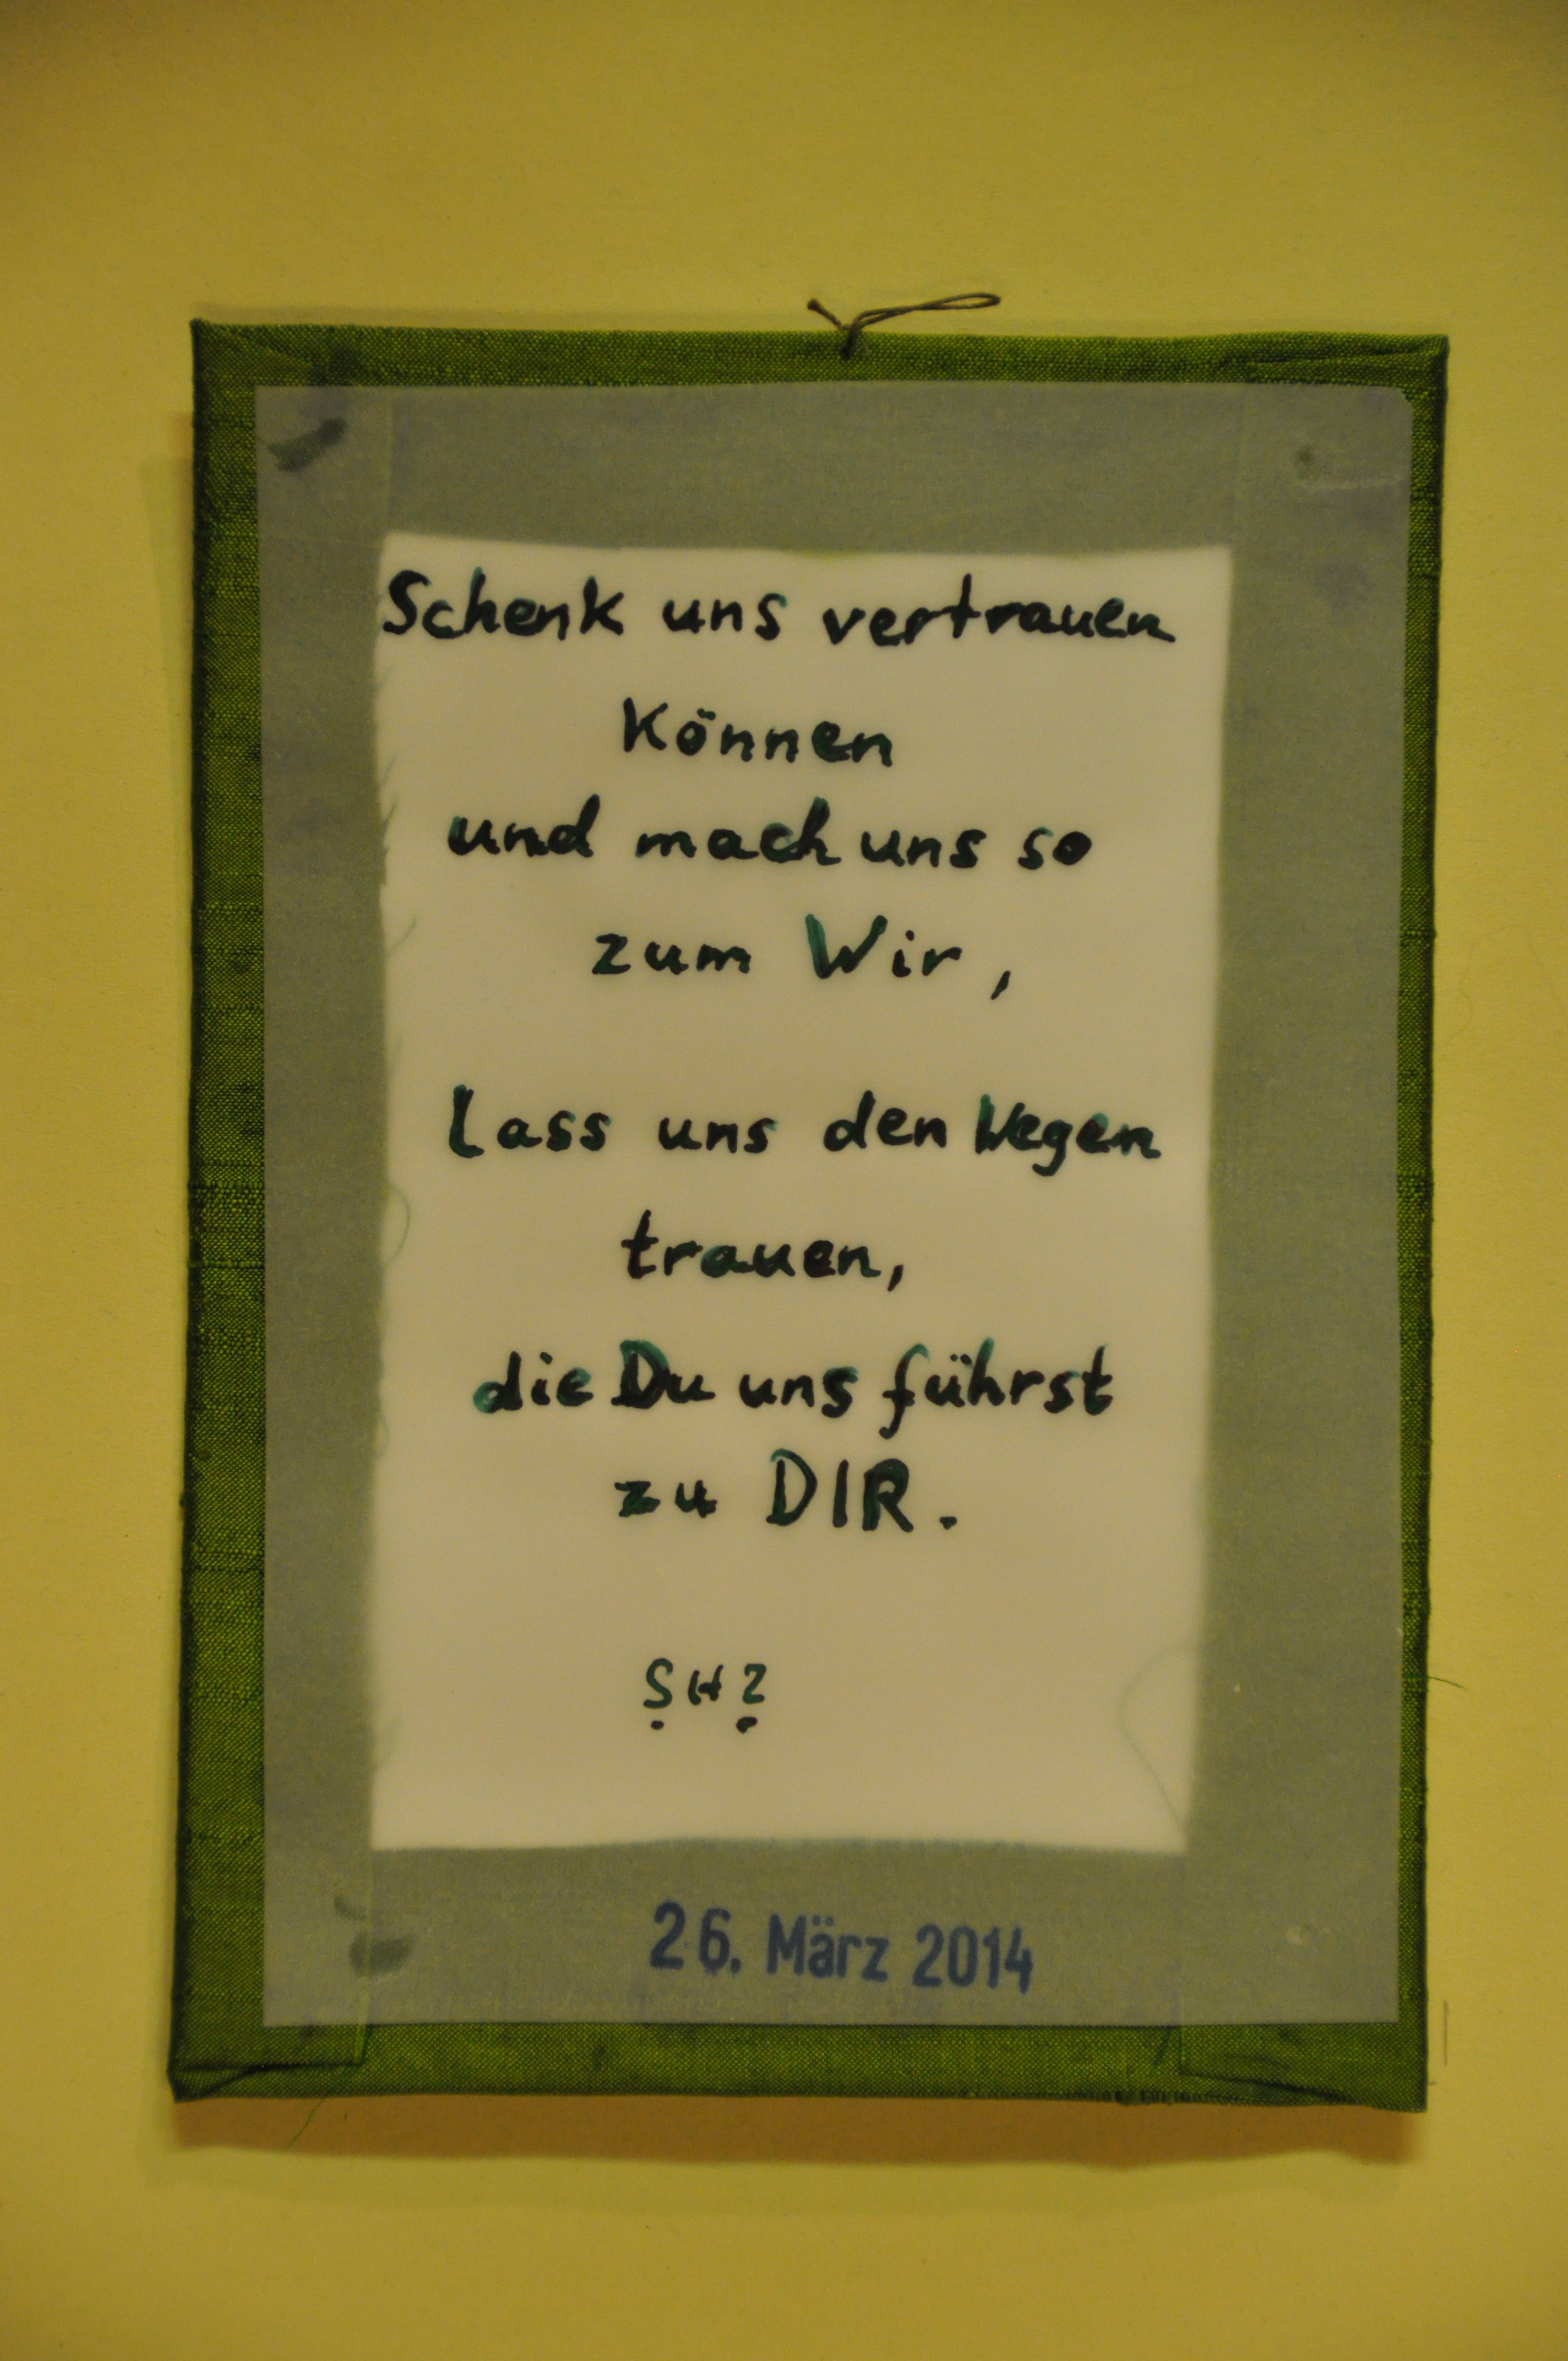 Schenk uns vertrauen
können
und mach uns so
zum Wir,
Lass uns den Wegen
trauen,
die Du uns führst
zu DIR.
26. März 2014